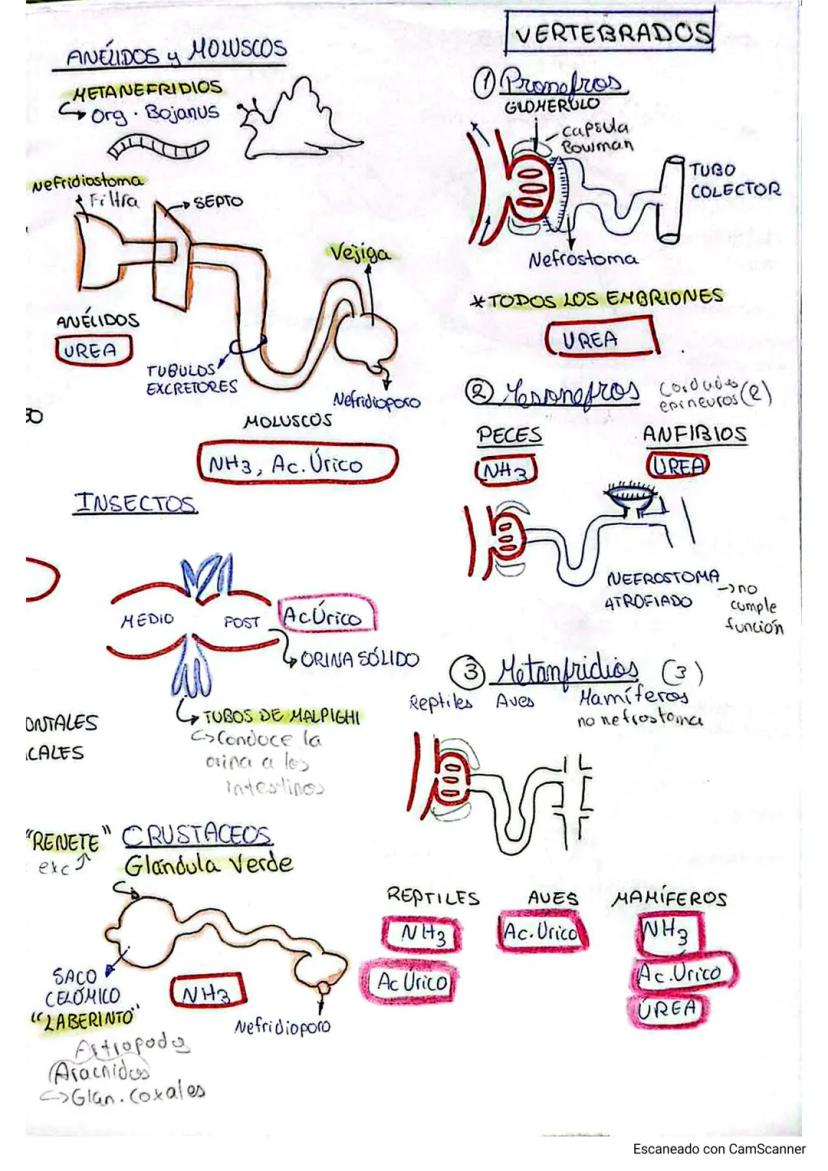 ANÉLIDOS y MOLUSCOS
METANEFRIDIOS
Org. Bojanus
Nefridiostoma
Filtra
SEPTO
Vejiga
ANÉLIDOS
UREA
TUBULOS
EXCRETORES
Nefridioporo
MOLUSCOS
NH3, Ac. Úrico
INSECTOS
MEDIO
POST
Ac Úrico
ORINA SÓLIDO
TUBOS DE MALPIGHI
Conduce la
orina a los
intestinos
ONTALES
CALES
"RENETE"
exc
CRUSTACEOS
Glándula Verde
SACO
CELÓMICO
"LABERINTO"
NH3
Nefridioporo
Artropodos
Aracnidos
Glan. Coxales
VERTEBRADOS
1 Pronefros
GLOMERULO
capsula
Bowman
TUBO
COLECTOR
Nefrostoma
*TODOS LOS EMBRIONES
UREA
2 Mesonefros
Cordados
epineuros (2)
PECES
ANFIBIOS
NH3
UREA
NEFROSTOMA
ATROFIADO
no
cumple
función
3 Metanfridios (3)
Reptiles Aves Mamíferos
no nefrostoma
REPTILES AVES MAMÍFEROS
NH3 Ac. Úrico NH3
Ac Úrico Ac. Úrico
ÚREA
Escaneado con CamScanner